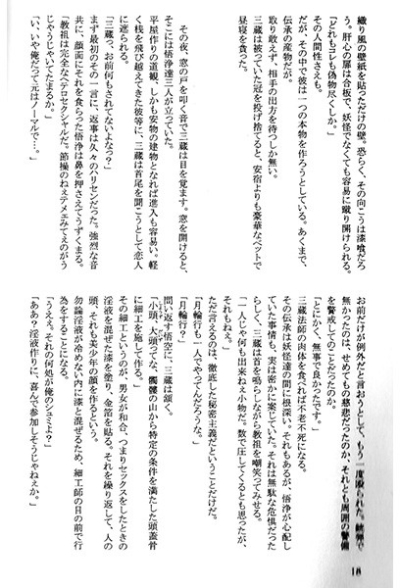 織り風の壁紙を貼っただけの壁。恐らく、その向こうは漆喰だろ
う。肝心の扉は合板で、妖怪でなくても容易に蹴り開けられる。
「どれもコレも偽物尽くしか。」
その人間性さえも。
だが、その中で彼は一つの本物を作ろうとしている。あくまで、
伝承の産物だが。
取り敢えず、相手の出方を待つしか無い。
三蔵は被っていた冠を投げ捨てると、安宿よりも豪華なベットで
昼寝を貪った。
その夜、窓の戸を叩く音で三蔵は目を覚ます。窓を開けると、
そこには悟浄達三人が立っていた。
平屋作りの道観、しかも安物の建物となれば進入も容易い。軽
く桟を飛び越えてきた彼等に、三蔵は首尾を聞こうとして恋人
に遮られる。
「三蔵っ、お前何もされてないよなっ？」
まず最初のその一言に、返事は久々のハリセンだった。強烈な音
共に、顔面にそれを食らった悟浄は鼻を押さえてうずくまる。
「教祖は完全なヘテロセクシャルだ。節操のねぇテメエみてぇのがう
じゃうじゃいてたまるか。」
「い、いや俺だって元はノーマルで…。」
お前だけが例外だと言おうとして、もう一度殴られた。錫杖で
無かったのは、せめてもの慈悲だったのか、それとも周囲の警備
を警戒してのことだったのか。
「とにかく、無事で良かったです。」
三蔵法師の肉体を食べれば不老不死になる。
その伝承は妖怪達の間に根深い。それもあるが、悟浄が心配し
ていた事情も、実は密かに案じていた。それは無駄な危惧だった
らしく、三蔵は首を鳴らしながら教祖を嘲笑ってみせる。
「一人じゃ何も出来ねぇ小物だ。数で圧してくるとも思ったが、
それもねぇ。」
ただ言えるのは、徹底した秘密主義だということだけだ。
「月輪行も一人でやってんだろうな。」
「月輪行？」
問い返す悟空に、三蔵は頷く。
「小頭、大頭ってな、髑髏の山から特定の条件を満たした頭蓋骨
に細工を施して作る。」
その細工というのが、男女が和合、つまりセックスをしたときの
淫液を混ぜた漆を塗り、金箔を貼る。それを繰り返して、人の
頭、それも美少年の顔を作るという。
勿論淫液が冷めない内に漆と混ぜるため、細工師の目の前で行
為をすることになる。
「うえぇ。それの何処が俺のシュミよ？」
「ああ？淫液作りに、喜んで参加しそうじゃねぇか。」
18